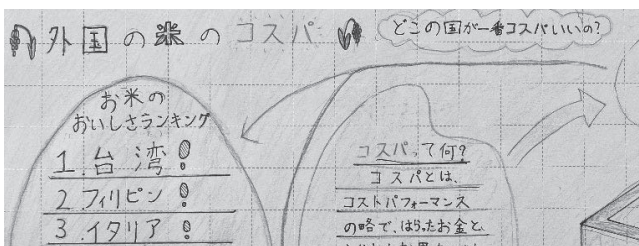 外国の米のコスパ
どこの国が一番コスパいいの?
お米の
おいしさランキング
1.台湾!
2.フィリピン!
3.イタリア!
コスパって何?
コスパとは、
コストパフォーマンス
の略で、はらったお金と